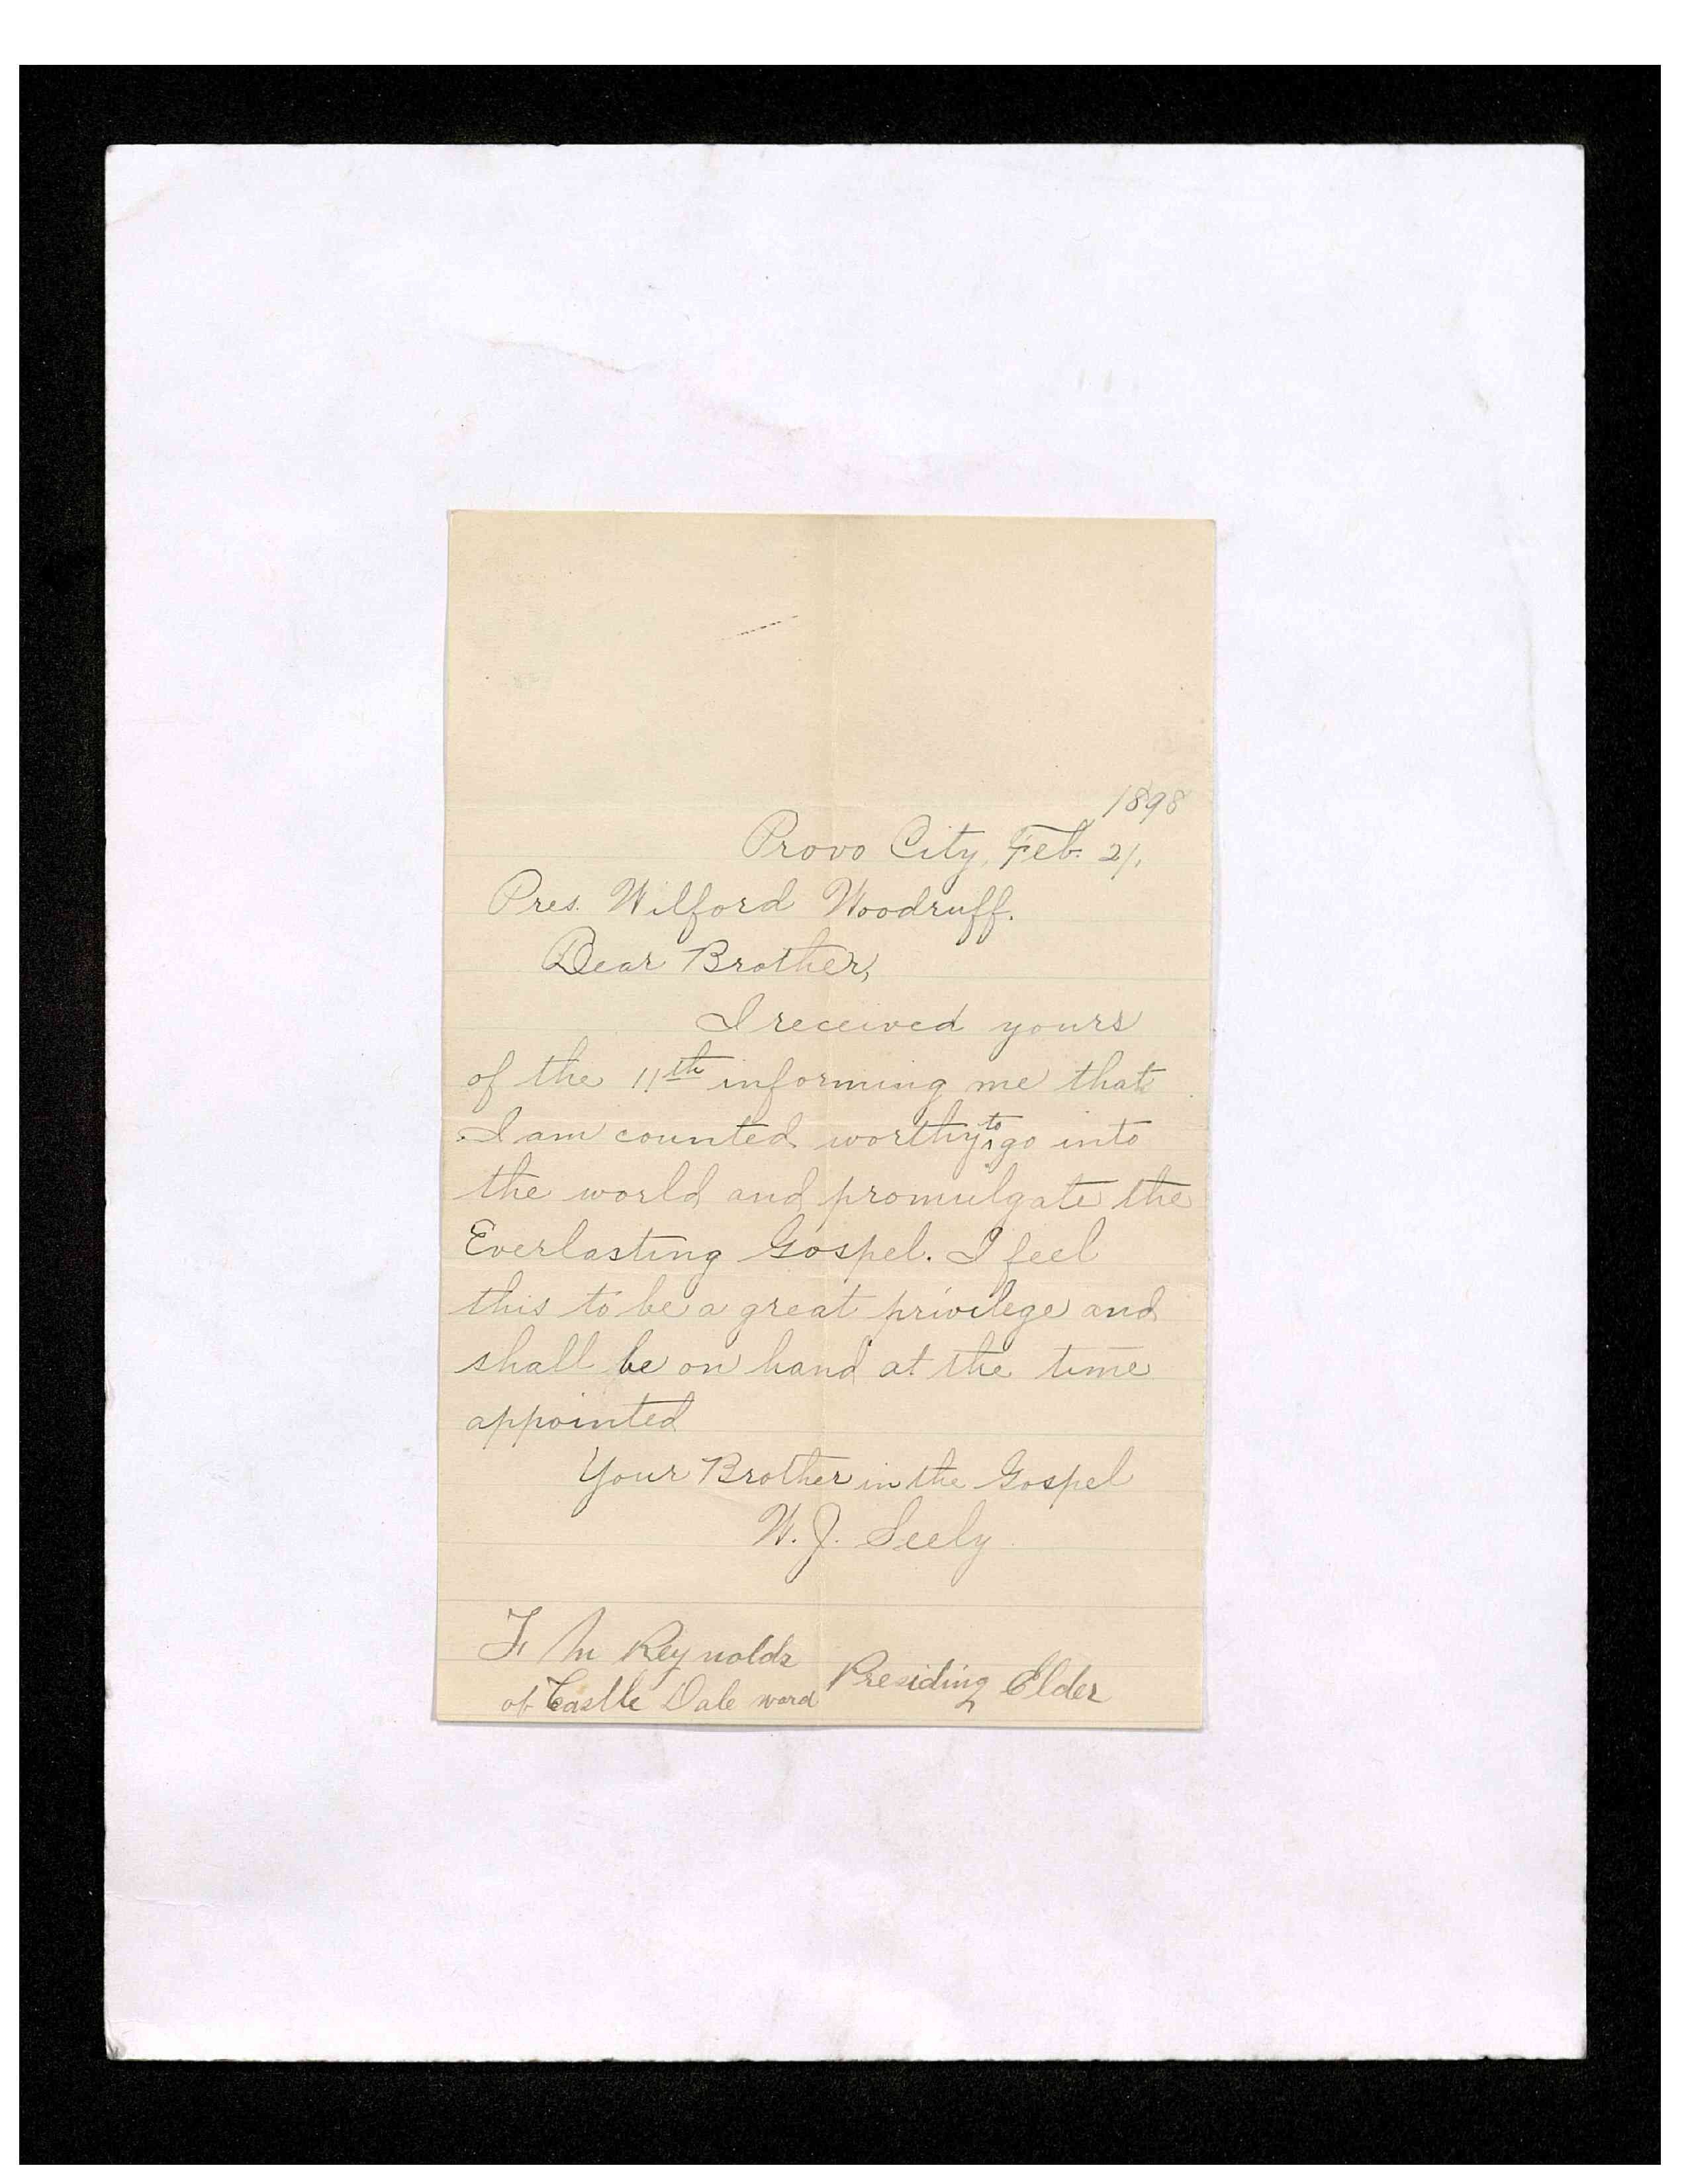 1898
Provo City, Feb. 21.
Pres. Wilford Woodruff.
Dear Brother,
I received yours
of the 11th informing me that
I am counted worthy to go into
the world and promulgate the
Everlasting Gospel. I feel
this to be a great privilege and
shall be on hand at the time
appointed
Your Brother in the Gospel
W. J. Seely
F M Reynolds
of Castle Dale ward Presiding Elder